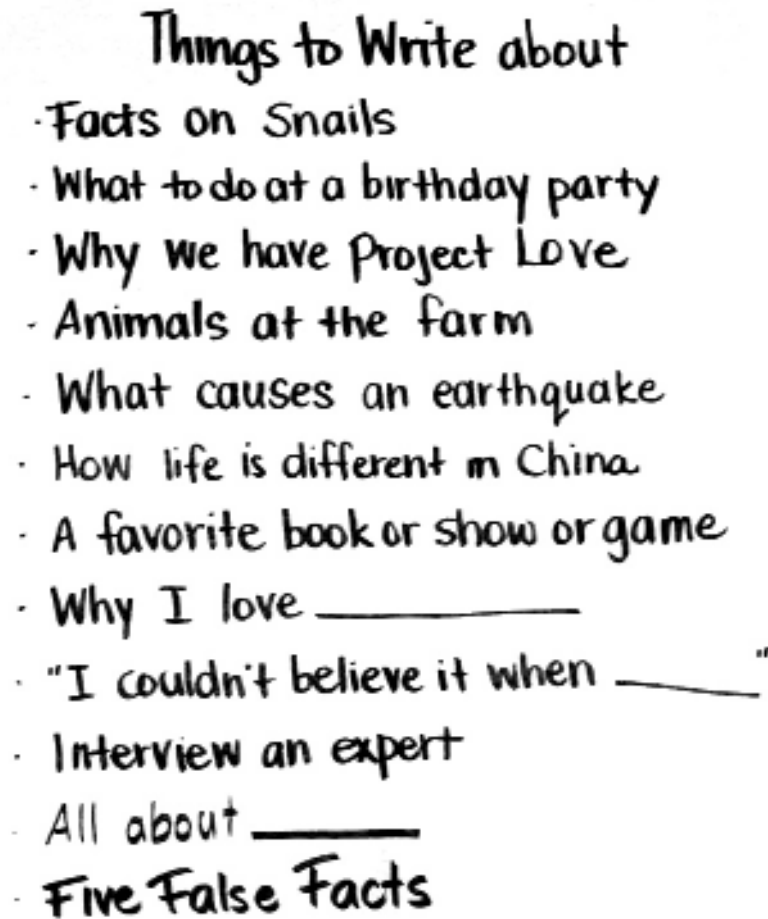 Things to Write about
· Facts on Snails
· What to do at a birthday party
· Why we have Project Love
· Animals at the farm
· What causes an earthquake
· How life is different in China
· A favorite book or show or game
· Why I love ________
· "I couldn't believe it when ____"
· Interview an expert
· All about ______
· Five False Facts